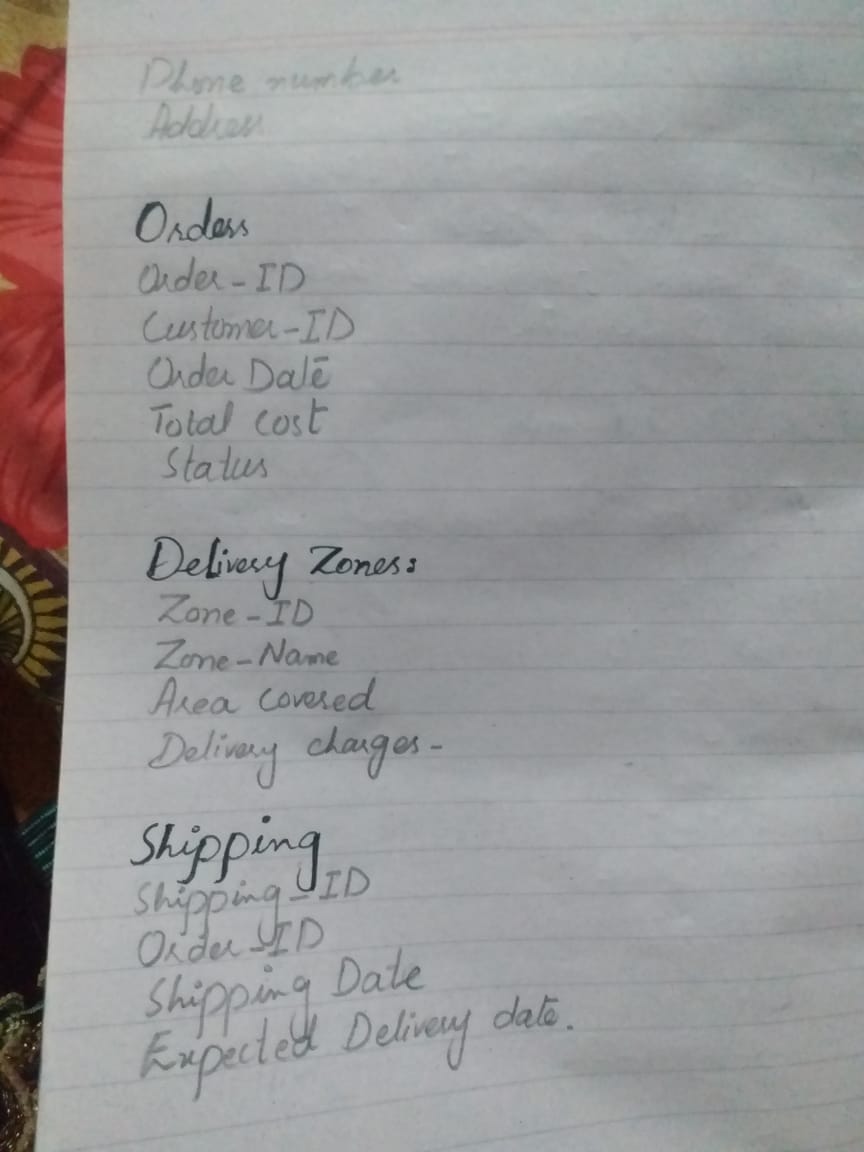 Phone number
Address
Orders
Order-ID
Customer-ID
Order Date
Total cost
Status
Delivery Zones:
Zone-ID
Zone-Name
Area covered
Delivery charges-
Shipping
Shipping-ID
Order-ID
Shipping Date
Expected Delivery date.